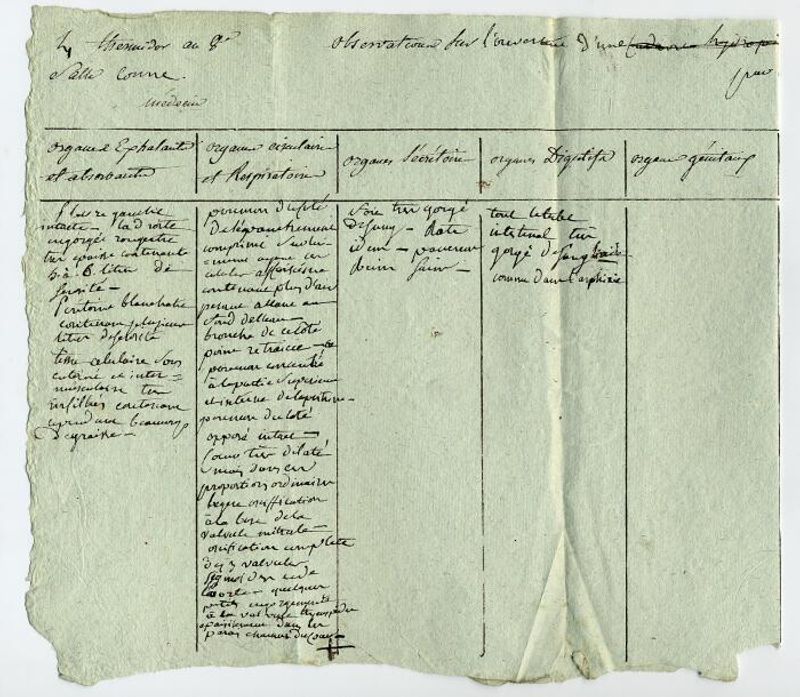 4 thermidor an 8e
observations sur l'ouverture d'une cadavre hydropi
Salle
médecin
organes Exhalants
et absorbants
organes circulaire
et Respiratoire
organes Sécrétoire
organes Digestifs
organes génitaux
Plevre gauche
intacte - la droite
engorgée rougeatre
tres epaisse contenante
5 à 6 litres de
serosité -
Peritoine blanchatre
contenant plusieurs
litres de serosité
tissu celulaire sous
cutané et inter =
musculaire tres
infiltrés contenant
beaucoup
de graisse -
poumon du coté
de l'épanchement
comprimé
contenant plus d'air
presque
fond de l'eau -
bronche de ce coté
point retraicie - ce
poumon
à la partie superieure
et interne de la poitrine -
poumon du coté
opposé intact -
coeur tres dilaté
mais dans ces
proportions ordinaires
legere ossification
à la base de la
valvule mitrale -
ossification complette
des 3 valvules
sigmoides de
l'aorte - quelques
petits engorgements
à la valvule tricuspide
epaississement dans les
parois charnues du coeur -
foie tres gorgé
de sang - Rate
idem - pancreas
Reins sains -
tout le tube
intestinal tres
gorgé de sang
comme dans l'asphixie